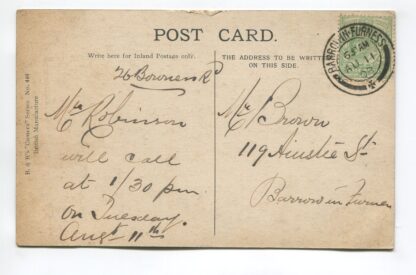 POST CARD.
Write here for Inland Postage only.
THE ADDRESS TO BE WRITTEN
ON THIS SIDE.
BARROW-IN-FURNESS
AU 11
26 Bowness Rd
Mr Robinson
will call
at 1/30 pm
on Tuesday
Augt 11th
Mr Brown
119 Ainslie St
Barrow in Furness
British Manufacture